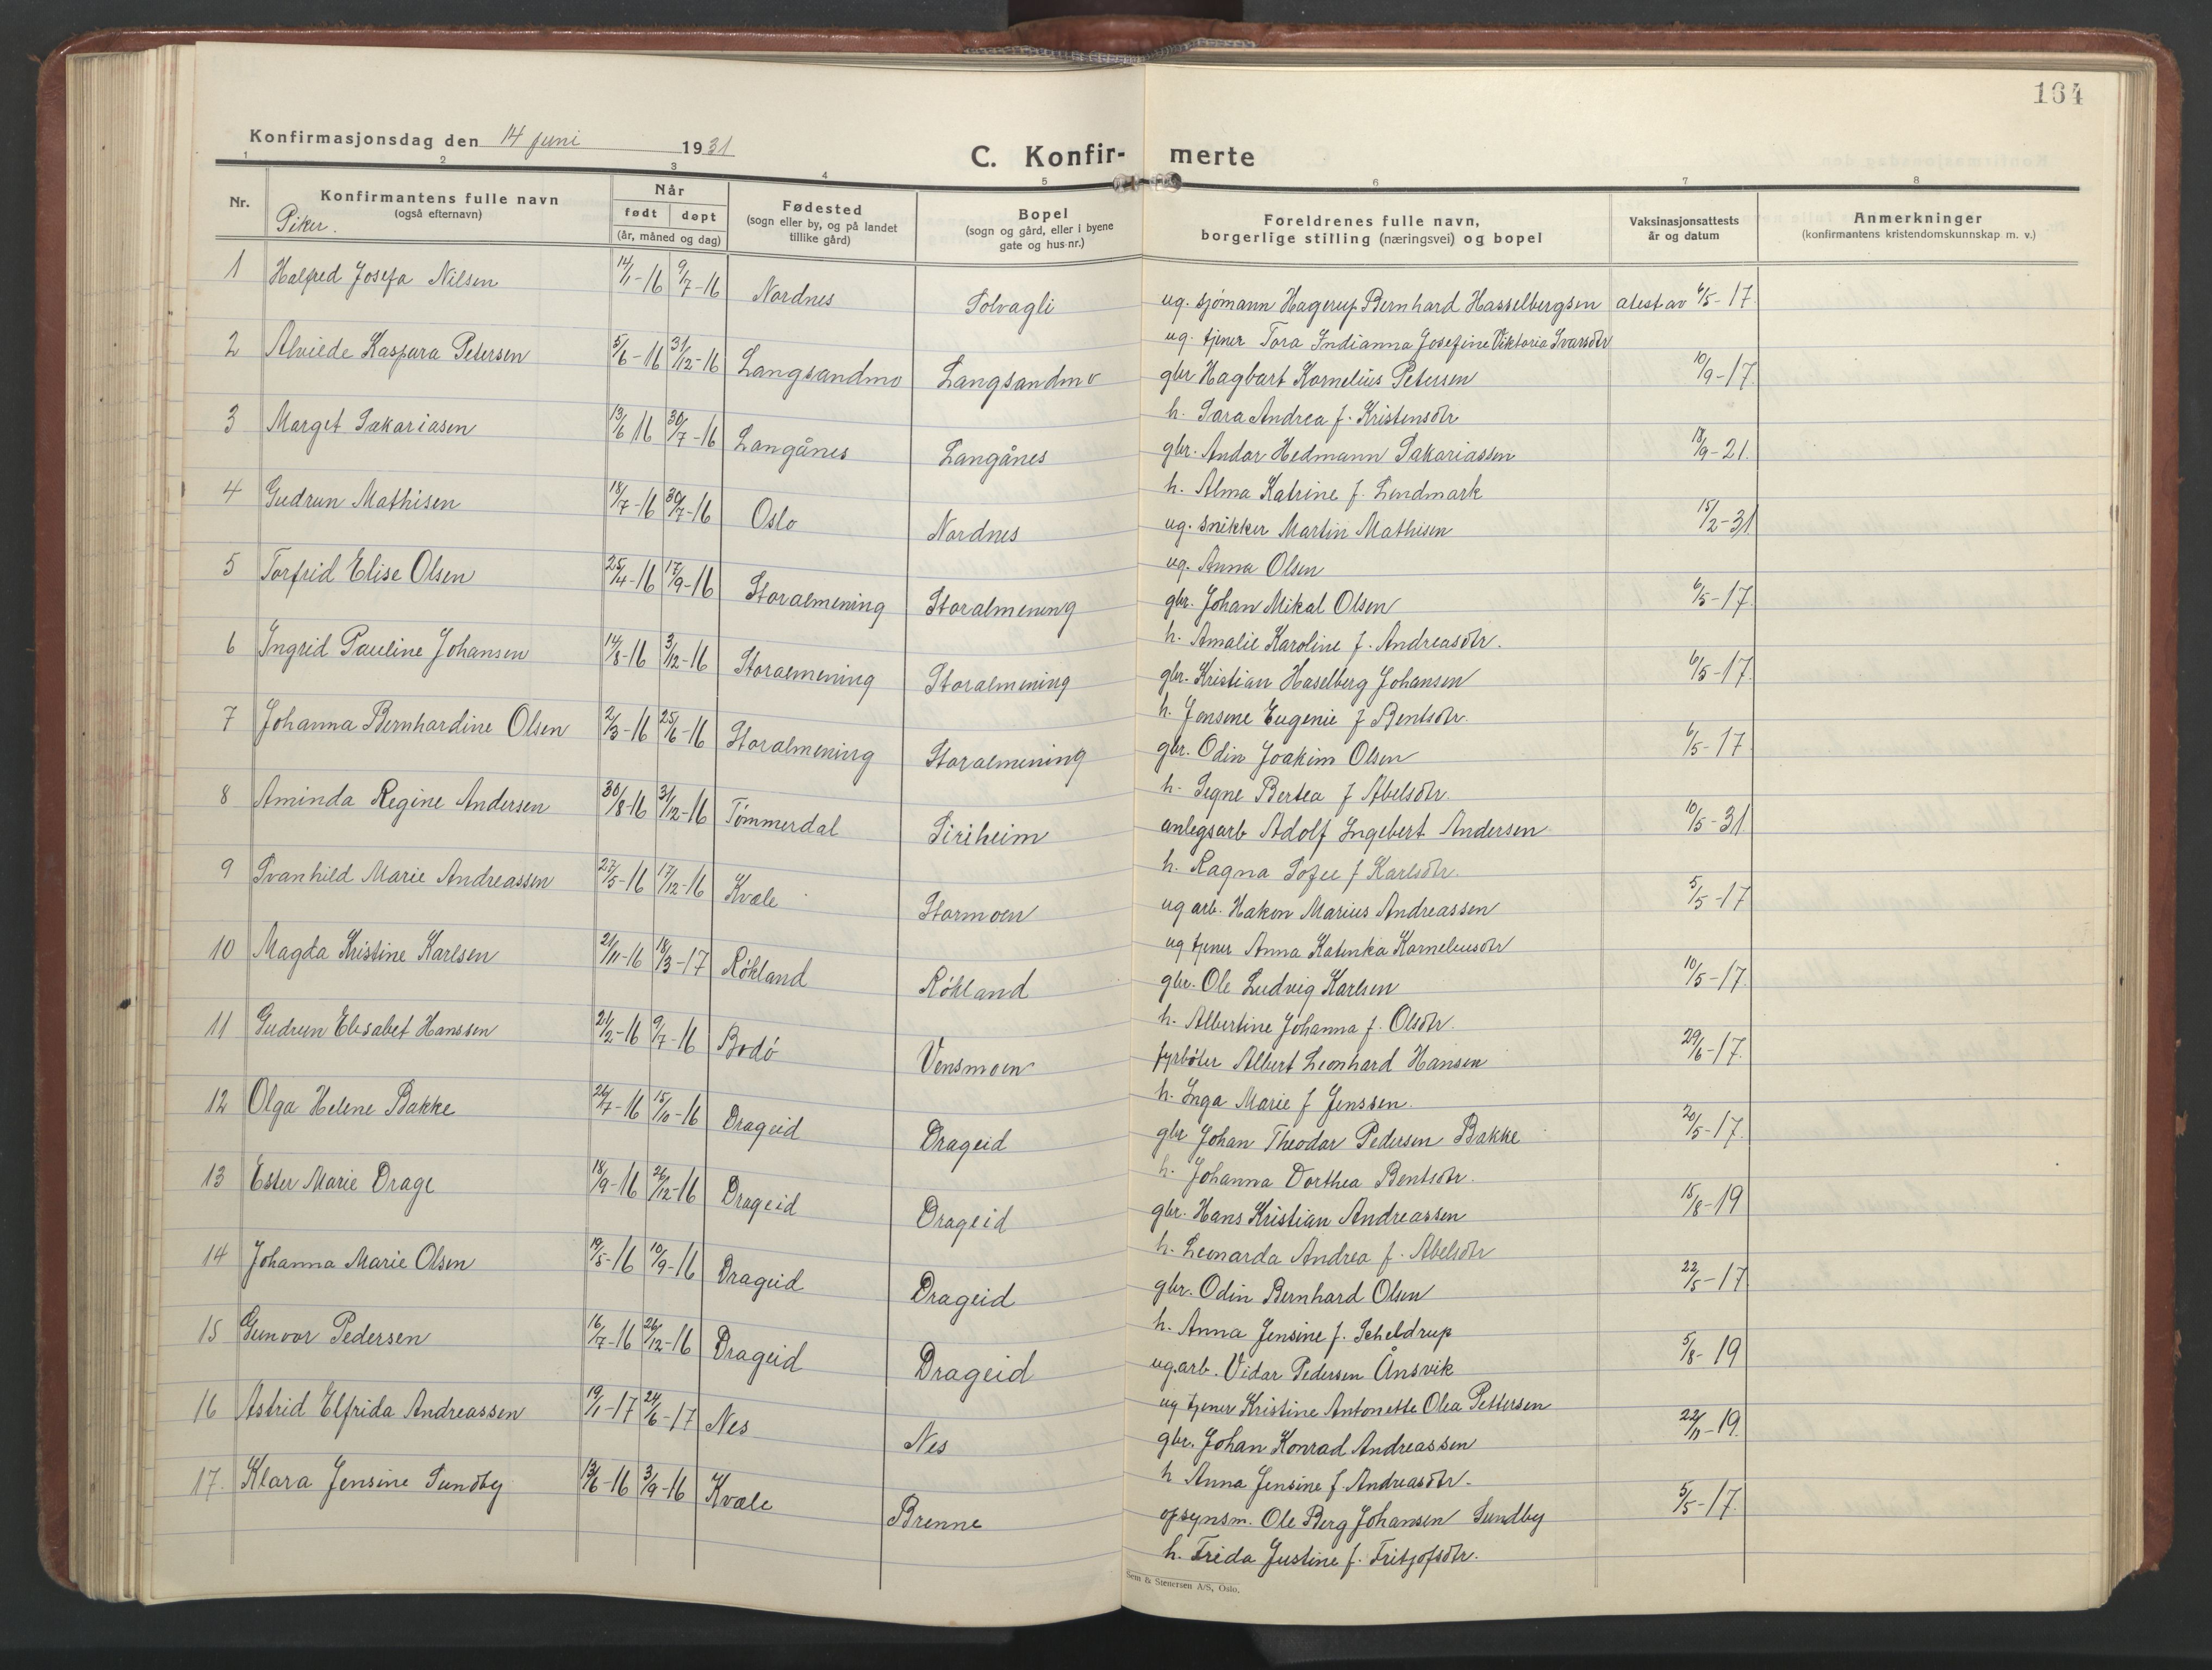 164
Konfirmasjonsdag den 14 juni 1931
C. Konfir- merte
1 2 3 4 5 6 7 8
Nr. Konfirmantens fulle navn (også efternavn) Når født døpt (år, måned og dag) Fødested (sogn eller by, og på landet tillike gård) Bopel (sogn og gård, eller i byene gate og hus-nr.) Foreldrenes fulle navn, borgerlige stilling (næringsvei) og bopel Vaksinasjonsattests år og datum Anmerkninger (konfirmantens kristendomskunnskap m. v.)
Piker.
1 Halfred Josefa Nilsen 14/1-16 9/7-16 Nordnes Solvagli ug. sjømann Hagerup Bernhard Hasselbergsen atest av 6/5-17.
ug. tjener Tora Indianna Josefine Viktoria Ivarsdtr
2 Alvilde Kaspara Petersen 5/6-16 31/12-16 Langsandmo Langsandmo gbr Hagbart Kornelius Petersen 10/9-17.
h. Sara Andrea f. Kristensdtr
3 Marget Sakariasen 13/6 16 30/7-16 Langånes Langånes gbr. Andor Hedmann Sakariassen 18/9-21.
h. Alma Katrine f. Lindmark
4 Gudrun Mathisen 18/7-16 30/7-16 Oslo Nordnes ug. snikker Martin Mathisen 15/2-31
ug. Anna Olsen
5 Torfrid Elise Olsen 25/4-16 17/9-16 Storalmening Storalmening gbr. Johan Mikal Olsen 6/5-17.
h. Amalie Karoline f. Andreasdtr.
6 Ingrid Pauline Johansen 14/8-16 3/12-16 Storalmening Storalmening gbr. Kristian Haselberg Johansen 6/5-17.
h. Jensine Eugenie f Bentsdtr.
7 Johanna Bernhardine Olsen 2/3-16 25/6-16 Storalmening Storalmening gbr. Odin Joakim Olsen 6/5-17
h. Signe Bertea f Abelsdtr.
8 Aminda Regine Andersen 30/8-16 31/12-16 Tømmerdal Siriheim anlegsarb Adolf Ingebert Andersen 10/5-31
h. Ragna Sofie f Karlsdtr.
9 Svanhild Marie Andreassen 27/5-16 17/12-16 Kvæle Stormoen ug arb. Hakon Marius Andreassen 5/5-17
ug tjener Anna Katinka Korneliusdtr
10 Magda Kristine Karlsen 21/11-16 18/3-17 Røkland Røkland gbr. Ole Ludvig Karlsen 10/5-17.
h. Albertine Johanna f. Olsdtr.
11 Gudrun Elisabet Hanssen 21/2-16 9/7-16 Bodø Vensmoen fyrbøter Albert Leonhard Hansen 29/6-17.
h. Inga Marie f Jenssen.
12 Olga Helene Bakke 26/7-16 15/10-16 Drageid Drageid gbr Johan Theodor Pedersen Bakke 20/5-17.
h. Johanna Dorthea Bentsdtr.
13 Ester Marie Drage 18/9-16 26/12-16 Drageid Drageid gbr. Hans Kristian Andreassen 15/8-19
h. Leonarda Andrea f. Abelsdtr
14 Johanna Marie Olsen 19/5-16 10/9-16 Drageid Drageid gbr. Odin Bernhard Olsen 22/5-17
h. Anna Jensine f. Scheldrup
15 Gunvor Pedersen 16/7-16 26/12-16 Drageid Drageid ug.arb. Vidar Pedersen Ånsvik 5/8-19
ug tjener Kristine Antonette Olea Pettersen
16 Astrid Elfrida Andreassen 19/1-17 24/6-17 Nes Nes gbr. Johan Konrad Andreassen 22/11-19.
h Anna Jensine f. Andreasdtr.
17. Klara Jensine Sundby 13/6-16 3/9-16 Kvæle Brenne opsynsm. Ole Berg Johansen Sundby 5/5-17.
h. Frida Justine f. Fritjofsdtr.
Sem & Stenersen A/S, Oslo.